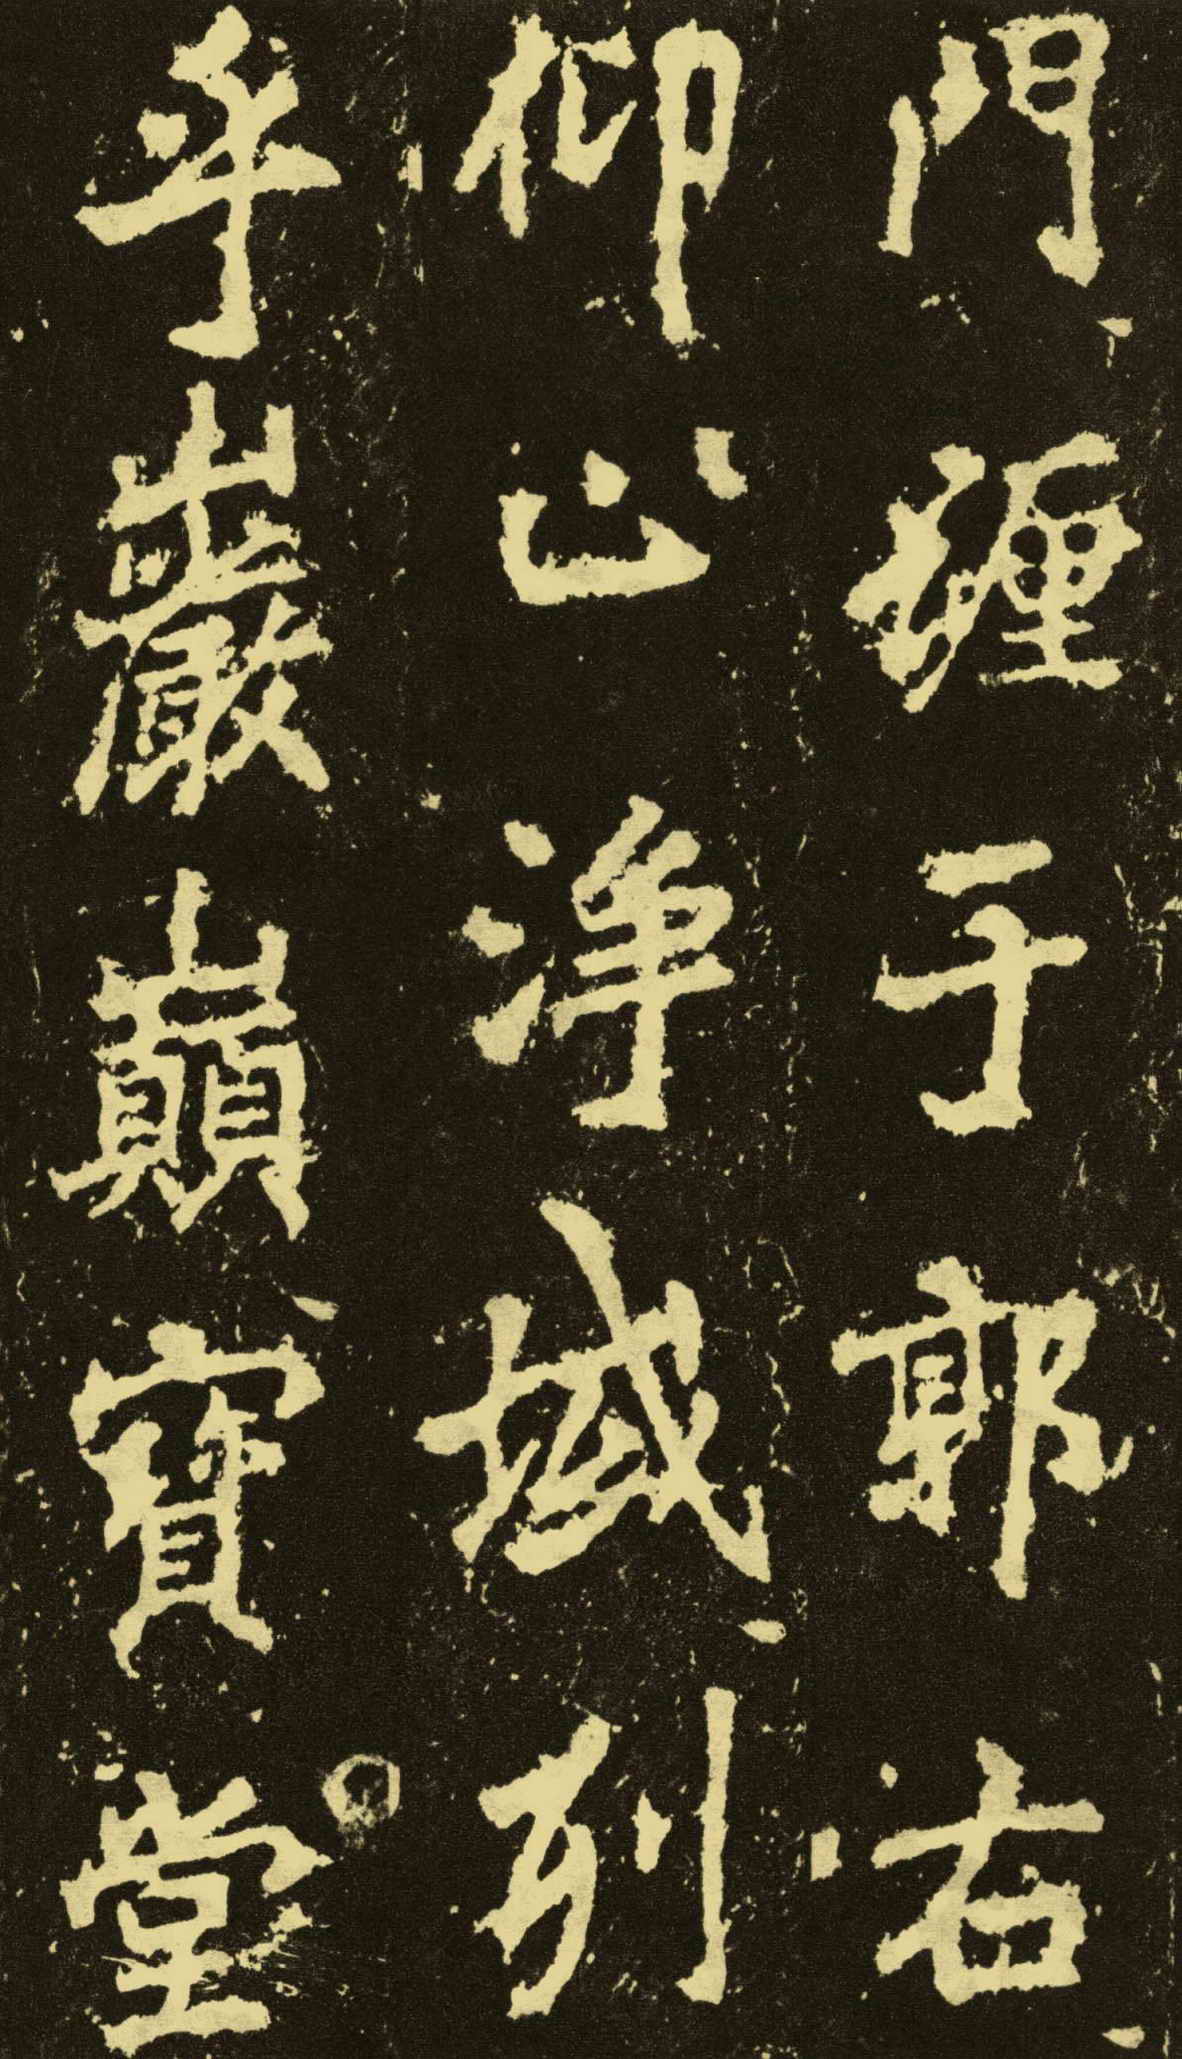 門纏于郭右
仰止淨域列
乎巖巔寶堂